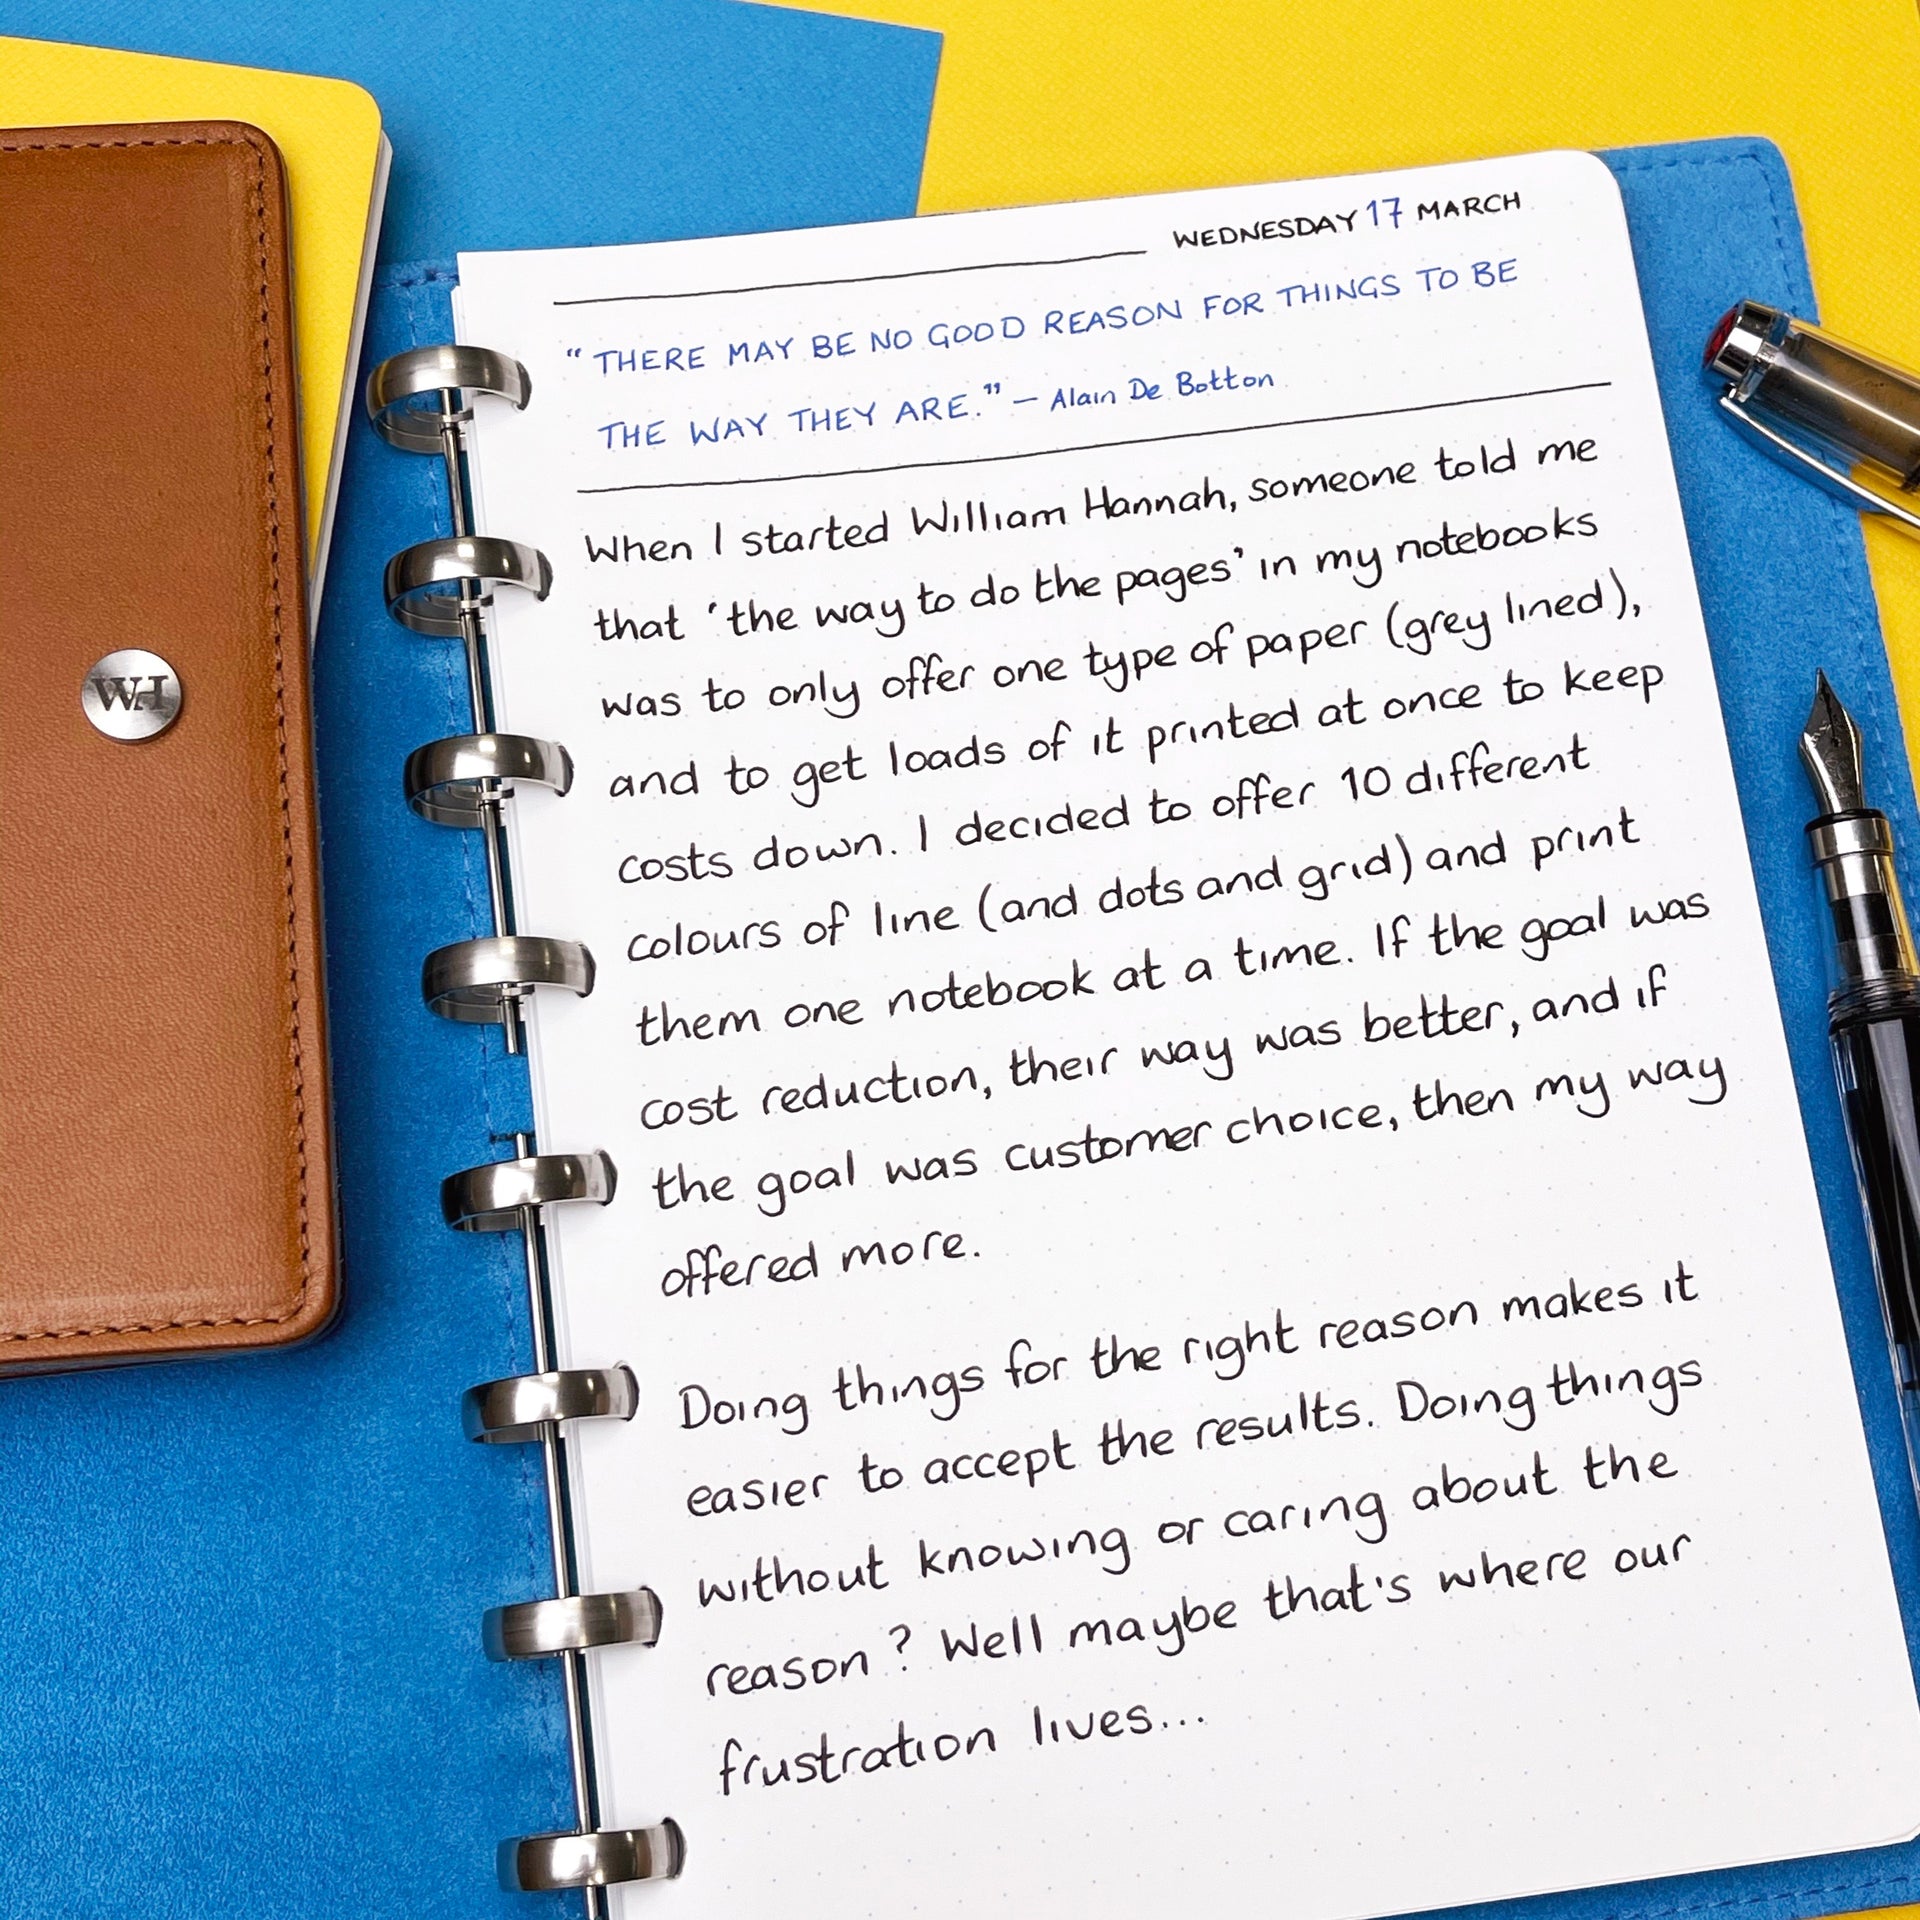 WEDNESDAY 17 MARCH
“THERE MAY BE NO GOOD REASON FOR THINGS TO BE
THE WAY THEY ARE.” – Alain De Botton
When I started William Hannah, someone told me
that ‘the way to do the pages’ in my notebooks
was to only offer one type of paper (grey lined),
and to get loads of it printed at once to keep
costs down. I decided to offer 10 different
colours of line (and dots and grid) and print
them one notebook at a time. If the goal was
cost reduction, their way was better, and if
the goal was customer choice, then my way
offered more.
Doing things for the right reason makes it
easier to accept the results. Doing things
without knowing or caring about the
reason? Well maybe that's where our
frustration lives...
WH